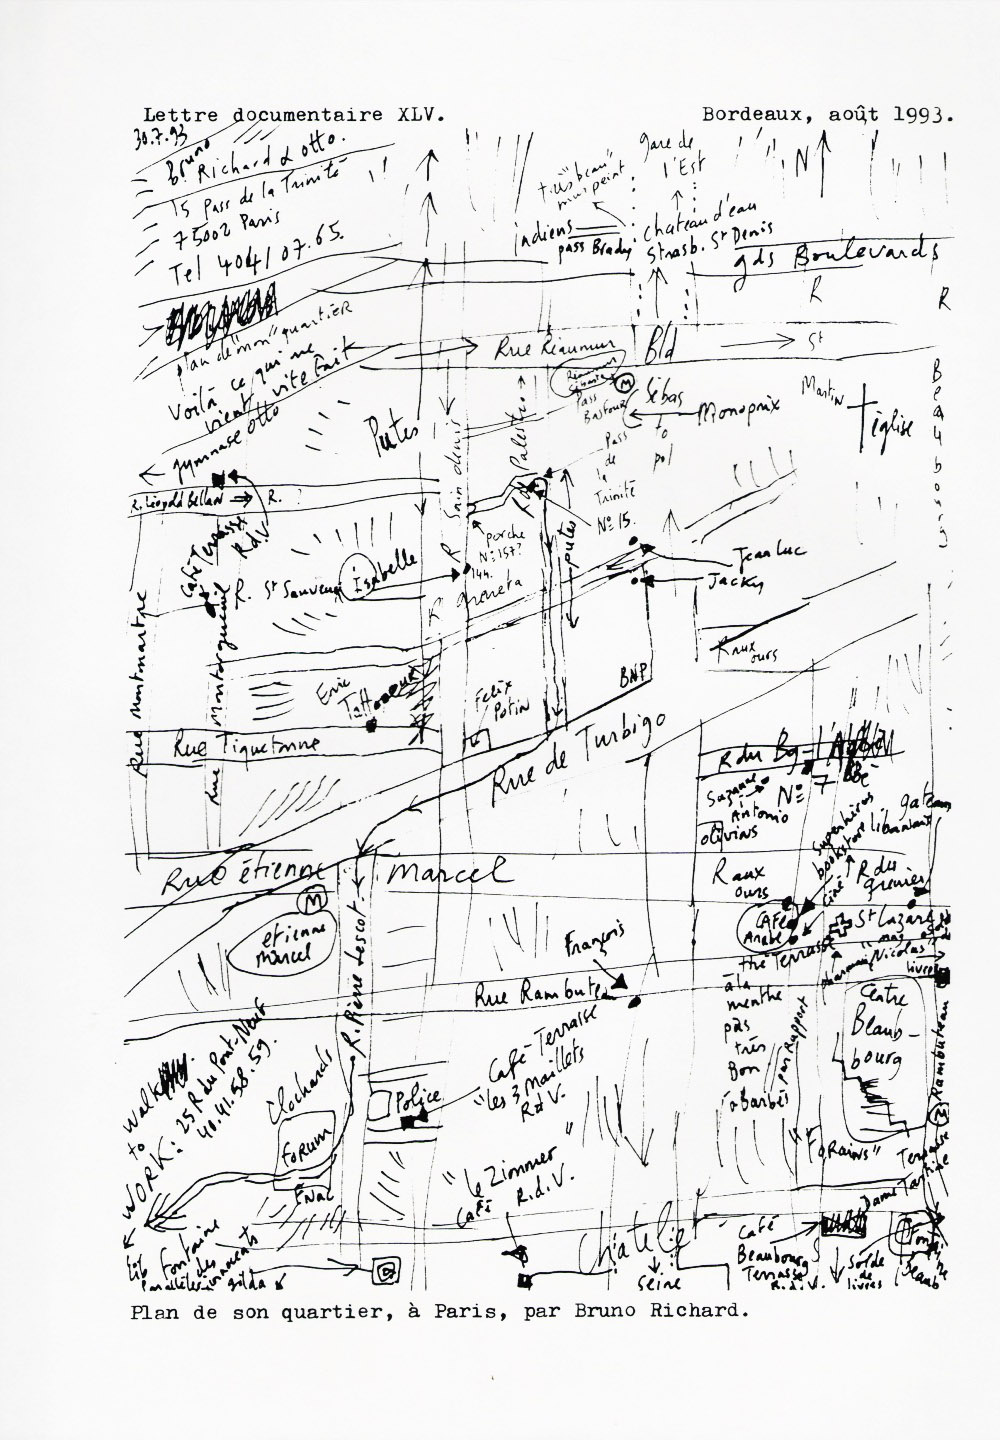 Lettre documentaire XLV.
Bordeaux, août 1993.
30.7.93
Bruno
Richard & otto.
15 pass de la Trinité
75002 Paris
Tel 404/07.65.
plan de "mon" quartier
Voilà ce qui me
vient vite fait
gymnase otto
"très beau"
mais peint
Indiens
pass Brady
gare de
l'Est
chateau d'eau
Strasb. St Denis
N
gds Boulevards
R
R
Rue Réaumur
Bld
St
Réaumur
M
Pass
Sébas
to
pol
Monoprix
Martin
église
Beaubourg
Putes
Saint denis
R
Palestro
Pass
de
la
Trinité
No 15.
R. Léopold Bellan
R. ?
Café Terrasse
RdV
porche
No 157?
144.
putes
Jean Luc
Jacky
R. St Sauveur
Isabelle
R
greneta
Rue montmartre
Rue Montorgueuil
Eric
Tattoo
Felix
Potin
BNP
R aux
ours
Rue Tiquetonne
Rue de Turbigo
R du Bg-l'Abbé
Suzanne
Antonio
No 7
olivins
gateaux
libanais
superhéros
bookstore
Rue étienne marcel
M
etienne
marcel
R aux
ours
ciné
R du
grenier
St Lazare
CAFé
Arabe
thé Terrasse
à la
menthe
pas
très
Bon
par Rapport
à Barbès
pharmacie
"Nicolas"
livres
François
Rue Rambuteau
R. Pierre Lescot.
Centre
Beaub-
bourg
Rambuteau
Café-Terrasse
"les 3 Maillets"
R.d.V.
Clochards
Police
walk
to
WORK:
25 R du Pont-Neuf
40.41.58.59.
Forum
Fnac
"le Zimmer"
Café
R.d.V.
"Forains"
Terrasse
Dame Tartine
Fontaine
des
innocents
Lib
Parallèles
gilda
Chatelet
Seine
Café
Beaubourg
Terrasse
R.d.V.
Solde
de
livres
Plan de son quartier, à Paris, par Bruno Richard.